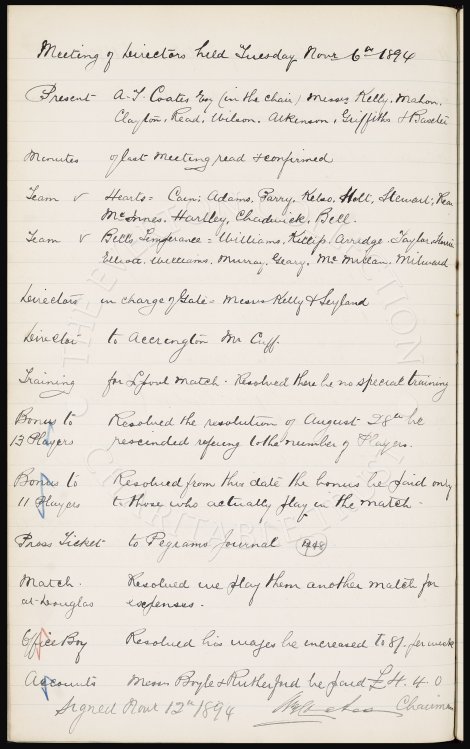 Meeting of Directors held Tuesday Novr 6th 1894
Present A. T. Coates Esq (in the chair) Messrs Kelly, Mahon,
Clayton, Read, Wilson, Atkinson, Griffiths & Baxter
Minutes of last Meeting read & confirmed
Team v Hearts = Cain; Adams, Parry, Kelso, Holt, Stewart,
McInnes, Hartley, Chadwick, Bell.
Team v Bells Temperance = Williams, Arridge, Taylor,
Elliott, Williams, Murray, Geary, McMillan, Milward
Directors in charge of Gate = Messrs Kelly & Leyland
Director to Accrington Mr Cuff.
Training for L'pool match. Resolved there be no special training
Bonus to 13 Players Resolved the resolution of August 28th be
rescinded refering to the number of Players.
Bonus to 11 Players Resolved from this date the bonus be paid only
to those who actually play in the match.
Press Ticket to Pegrams Journal
Match at Douglas Resolved we play them another match for
expenses.
Office Boy Resolved his wages be increased to 8/. per week
Accounts Messrs Boyle & Rutherford be paid £4. 4. 0
Signed Novr 12th 1894 Chairman